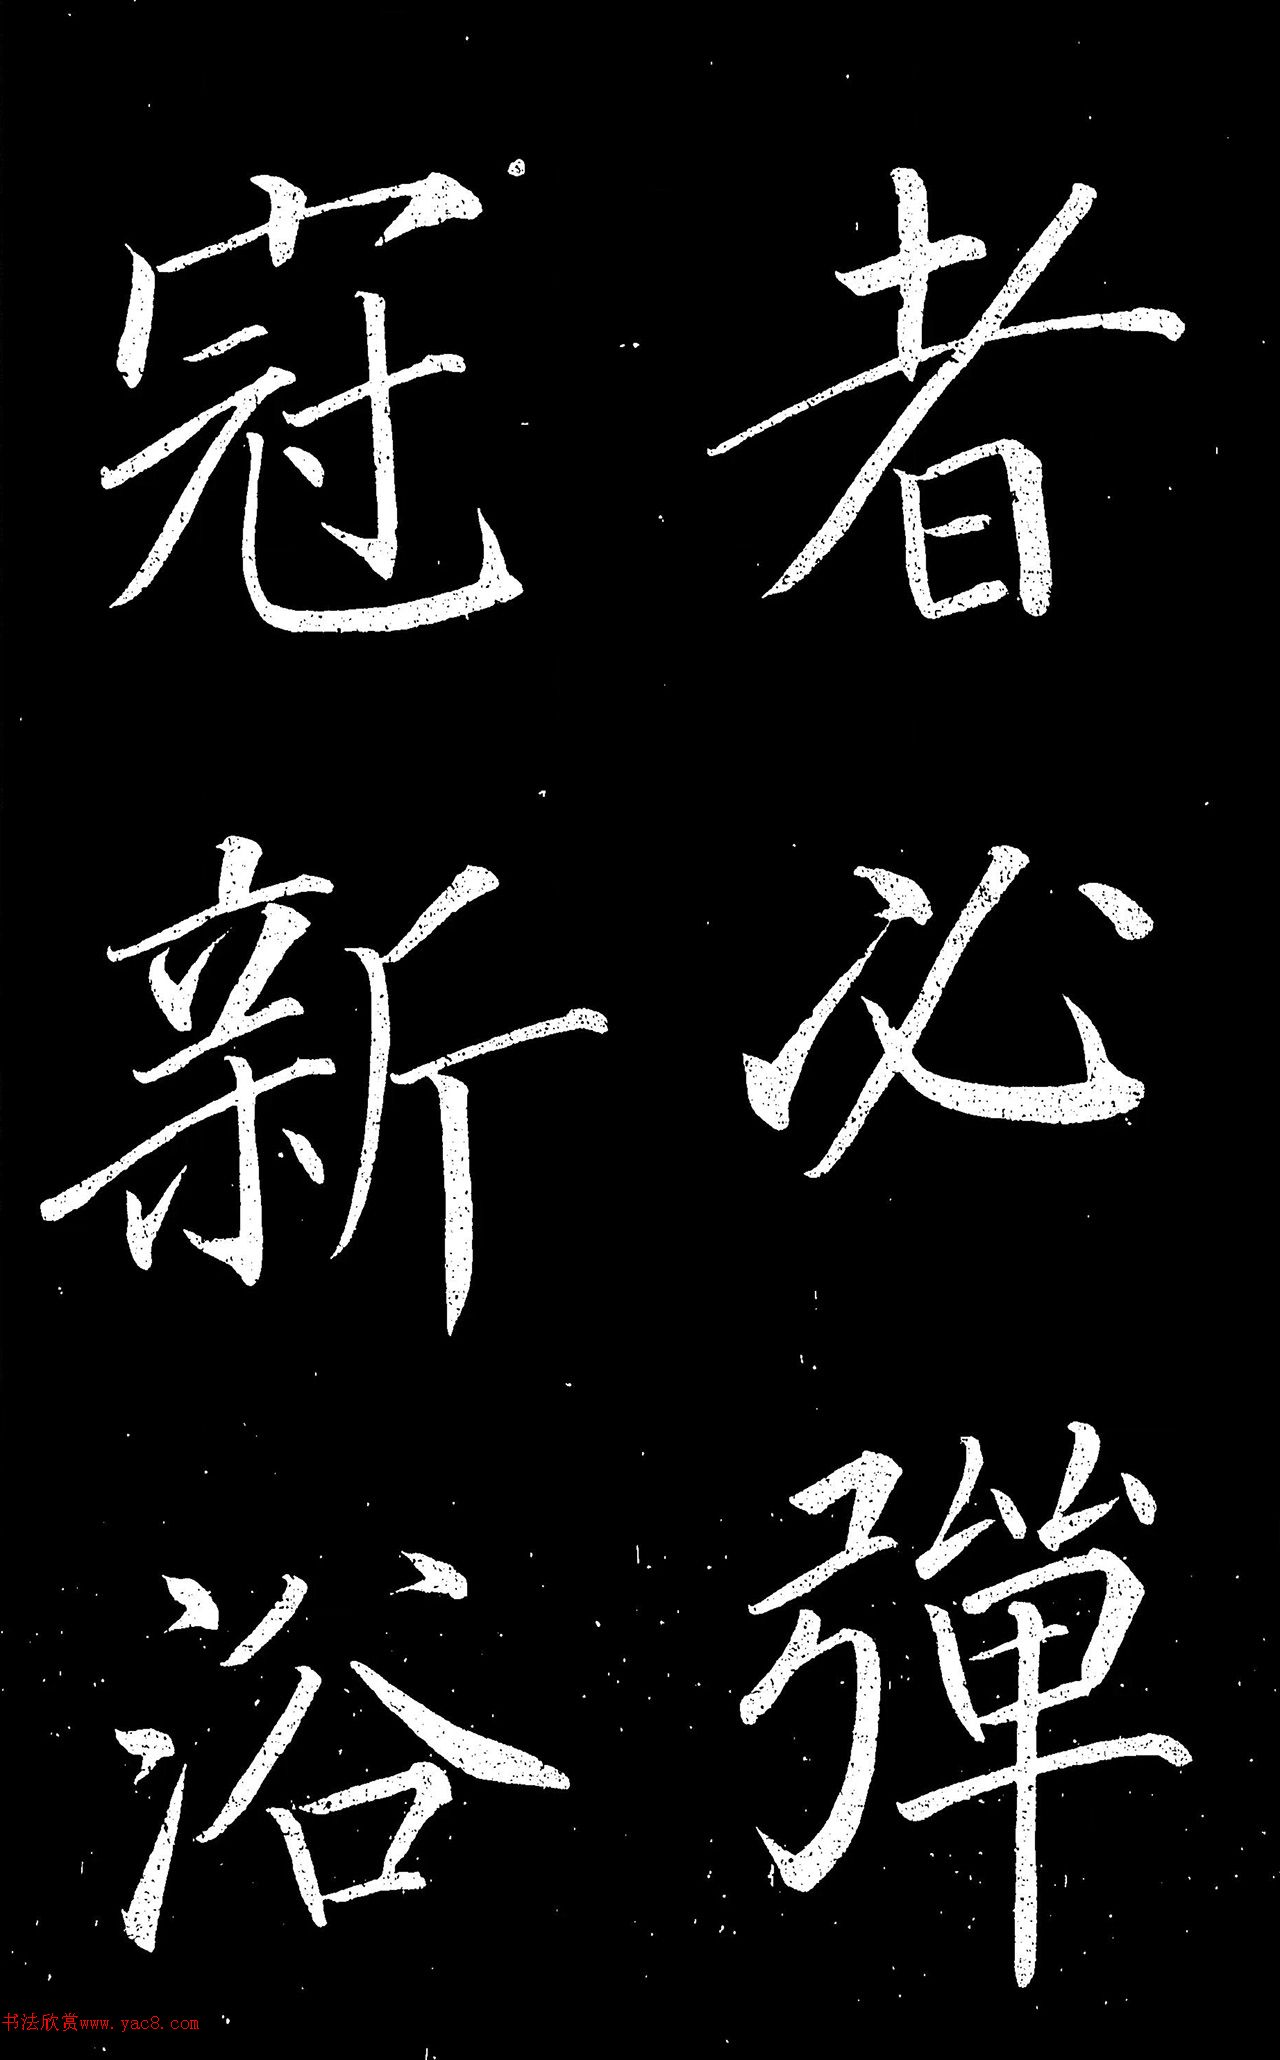 者必彈
冠新浴
书法欣赏www.yac8.com